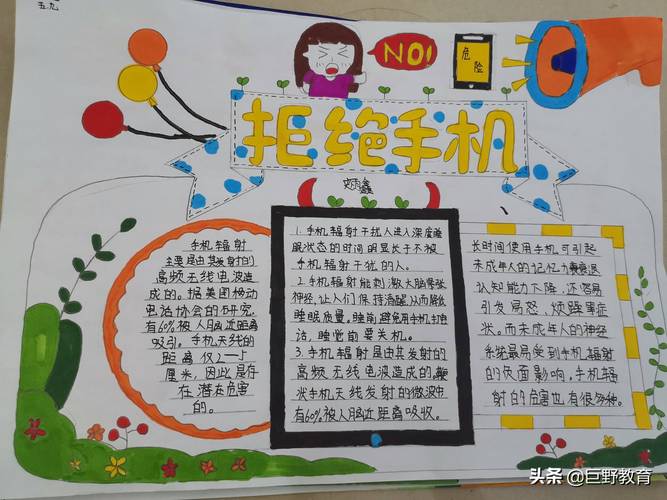 五九
NO!
危
险
拒绝手机
手机辐射
主要是由其发射的
高频无线电波造
成的。据美国移动
电话协会的研究,
有60%被人脑近距离
吸引。手机天线的
距离仅2—5
厘米,因此是存
在潜在危害
的。
1.手机辐射干扰人进入深度睡
眠状态的时间明显长于不被
手机辐射干扰的人。
2.手机辐射能刺激大脑紧张
神经,让人们保持清醒,从而降低
睡眠质量。睡前避免用手机打电
话,睡觉前要关机。
3.手机辐射是由其发射的
高频无线电波造成的,
状手机天线发射的微波中
有60%被人脑近距离吸收。
长时间使用手机可引起
未成年人的记忆力衰退
认知能力下降,还容易
引发局怒、烦躁等症
状。而未成年人的神经
系统最易受到手机辐射
的负面影响,手机辐
射的危害也有很多种。
头条 @巨野教育